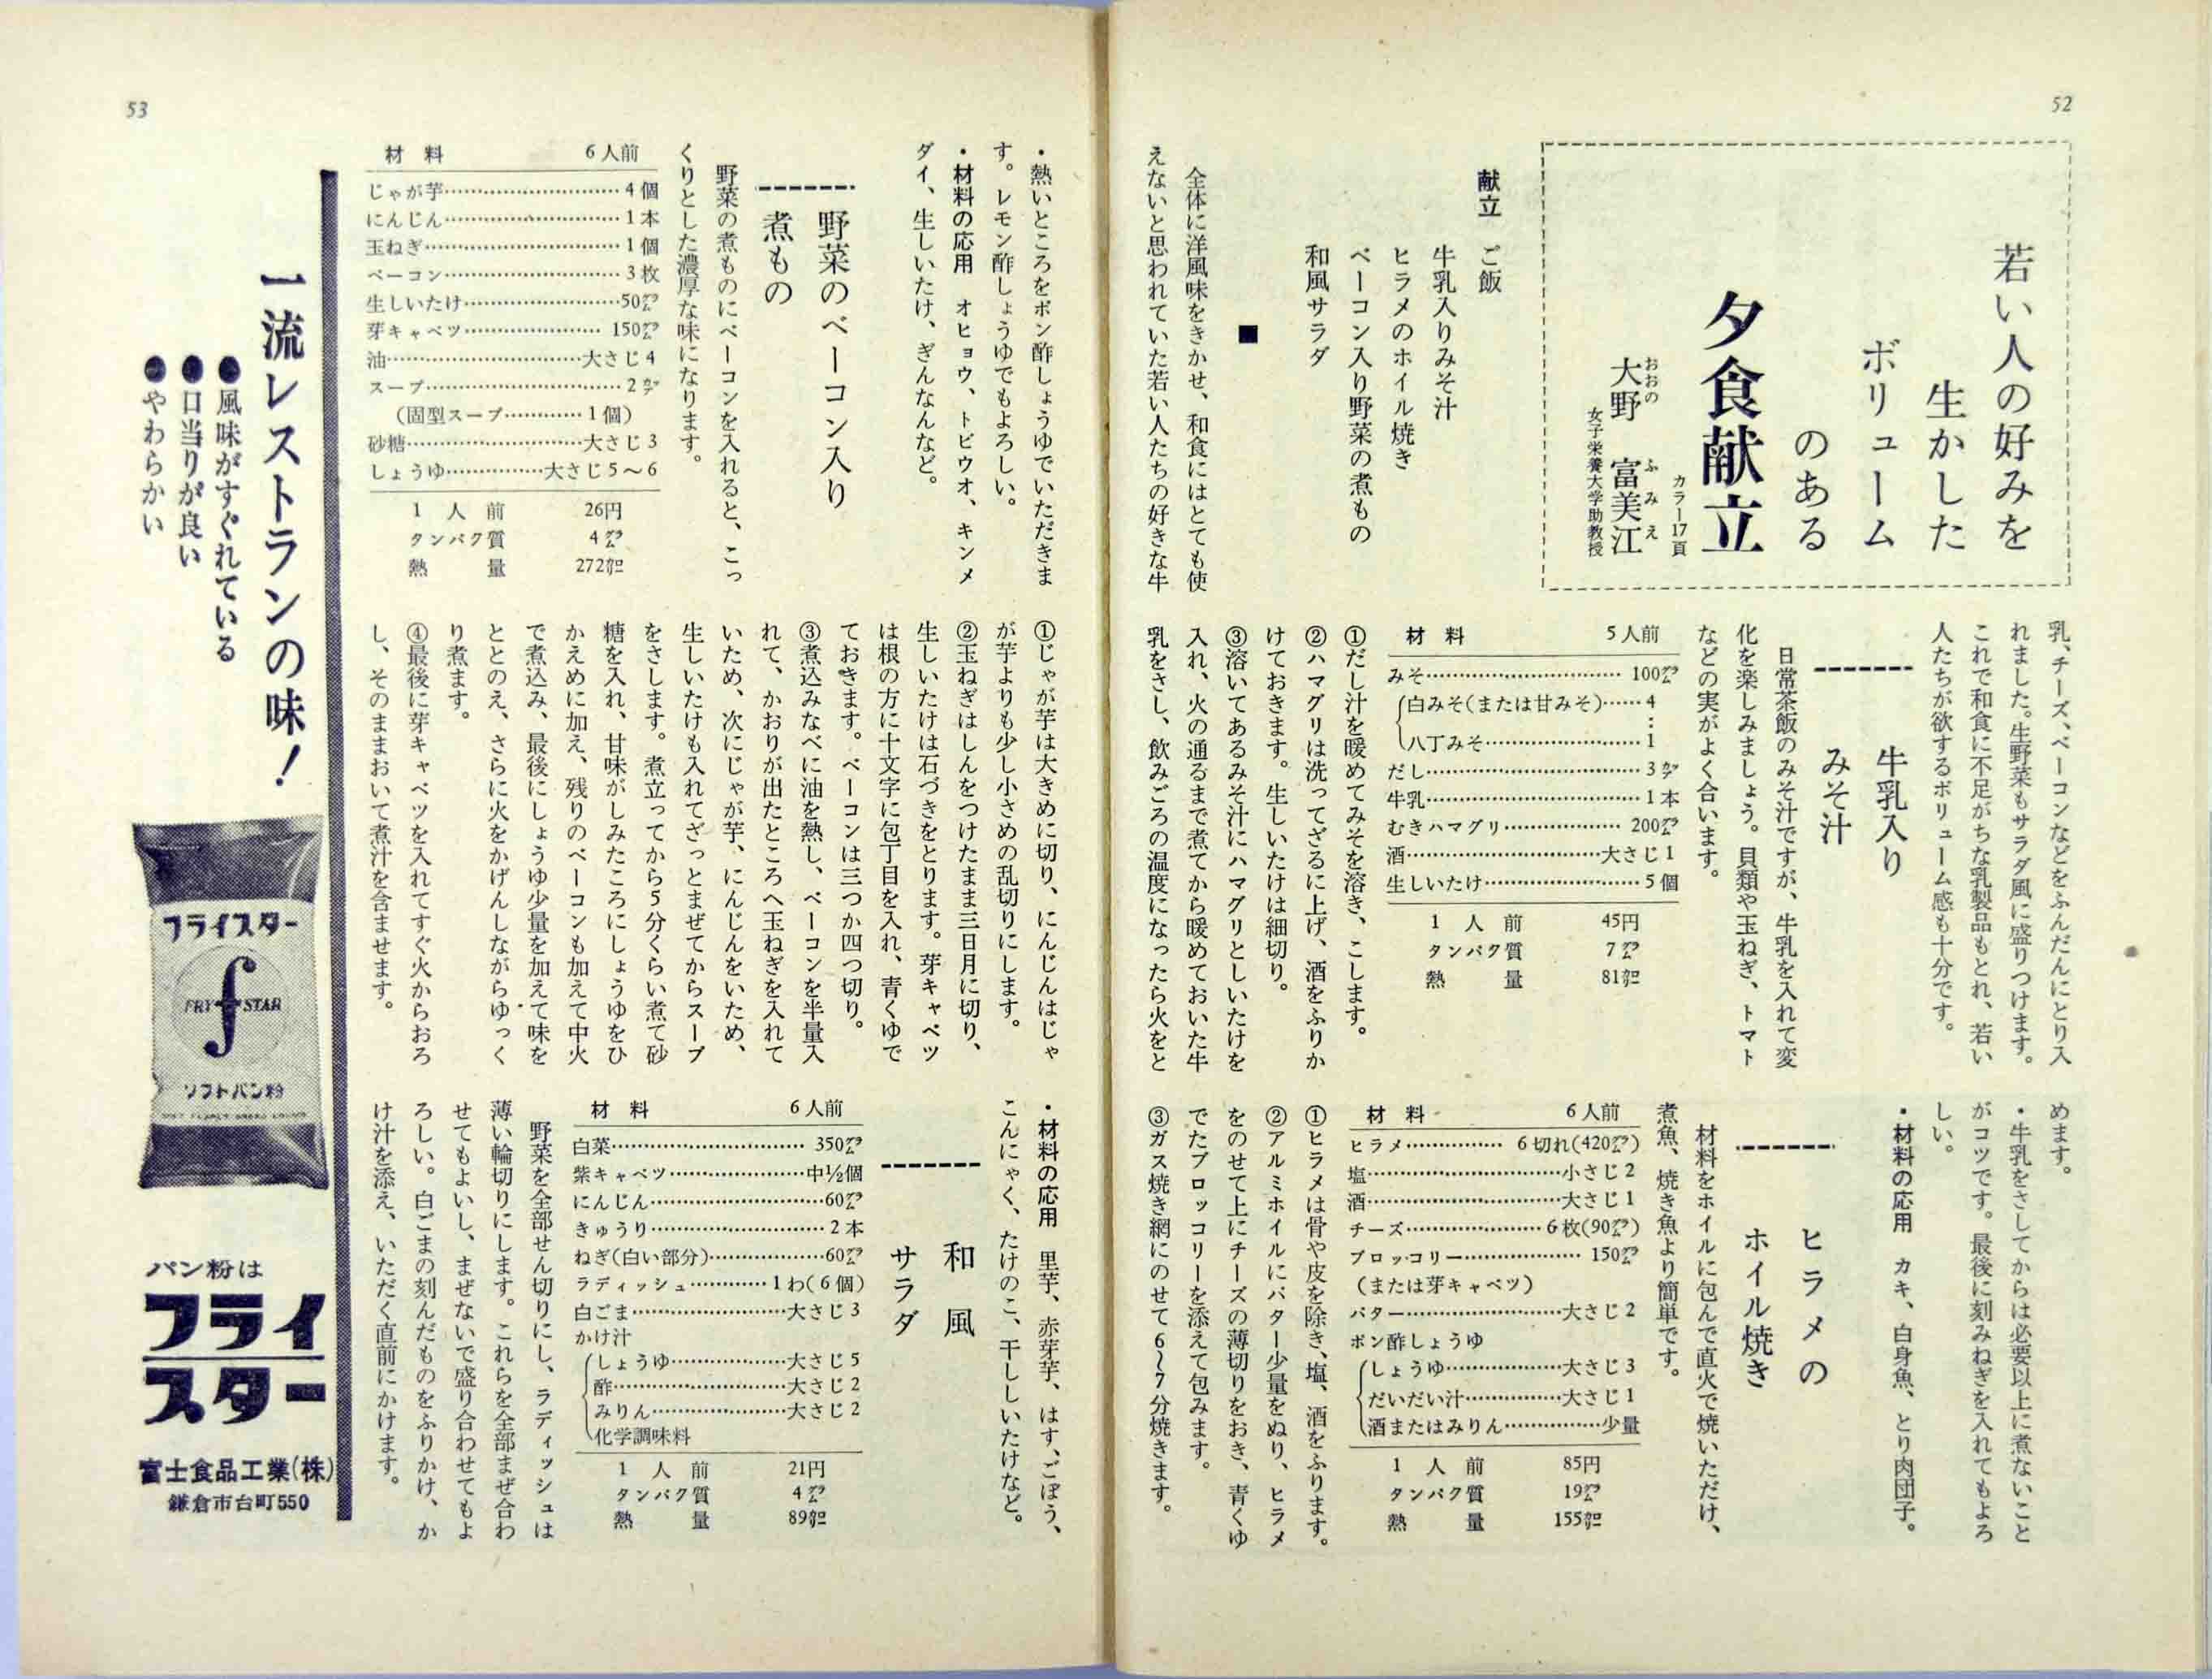 52
若い人の好みを
生かした
ボリューム
のある
夕食献立
カラー17頁
大野 富美江
おおの ふみえ
女子栄養大学助教授
献立 ご飯
牛乳入りみそ汁
ヒラメのホイル焼き
ベーコン入り野菜の煮もの
和風サラダ
■
全体に洋風味をきかせ、和食にはとても使
えないと思われていた若い人たちの好きな牛
乳、チーズ、ベーコンなどをふんだんにとり入
れました。生野菜もサラダ風に盛りつけます。
これで和食に不足がちな乳製品もとれ、若い
人たちが欲するボリューム感も十分です。
牛乳入り
みそ汁
日常茶飯のみそ汁ですが、牛乳を入れて変
化を楽しみましょう。貝類や玉ねぎ、トマト
などの実がよく合います。
材料 5人前
みそ……100㌘
白みそ(または甘みそ)……4
:
八丁みそ……1
だし……3㌍
牛乳……1本
むきハマグリ……200㌘
酒……大さじ1
生しいたけ……5個
1人前 45円
タンパク質 7㌘
熱量 81㌍
①だし汁を暖めてみそを溶き、こします。
②ハマグリは洗ってざるに上げ、酒をふりか
けておきます。生しいたけは細切り。
③溶いてあるみそ汁にハマグリとしいたけを
入れ、火の通るまで煮てから暖めておいた牛
乳をさし、飲みごろの温度になったら火をと
めます。
・牛乳をさしてからは必要以上に煮ないこと
がコツです。最後に刻みねぎを入れてもよろ
しい。
・材料の応用 カキ、白身魚、とり肉団子。
ヒラメの
ホイル焼き
材料をホイルに包んで直火で焼いただけ、
煮魚、焼き魚より簡単です。
材料 6人前
ヒラメ……6切れ(420㌘)
塩……小さじ2
酒……大さじ1
チーズ……6枚(90㌘)
ブロッコリー……150㌘
(または芽キャベツ)
バター……大さじ2
ポン酢しょうゆ
しょうゆ……大さじ3
だいだい汁……大さじ1
酒またはみりん……少量
1人前 85円
タンパク質 19㌘
熱量 155㌍
①ヒラメは骨や皮を除き、塩、酒をふります。
②アルミホイルにバター少量をぬり、ヒラメ
をのせて上にチーズの薄切りをおき、青くゆ
でたブロッコリーを添えて包みます。
③ガス焼き網にのせて6~7分焼きます。
53
・熱いところをポン酢しょうゆでいただきま
す。レモン酢しょうゆでもよろしい。
・材料の応用 オヒョウ、トビウオ、キンメ
ダイ、生しいたけ、ぎんなんなど。
野菜のベーコン入り
煮もの
野菜の煮ものにベーコンを入れると、こっ
くりとした濃厚な味になります。
材料 6人前
じゃが芋……4個
にんじん……1本
玉ねぎ……1個
ベーコン……3枚
生しいたけ……50㌘
芽キャベツ……150㌘
油……大さじ4
スープ……2㌍
(固型スープ……1個)
砂糖……大さじ3
しょうゆ……大さじ5〜6
1人前 26円
タンパク質 4㌘
熱量 272㌍
①じゃが芋は大きめに切り、にんじんはじゃ
が芋よりも少し小さめの乱切りにします。
②玉ねぎはしんをつけたまま三日月に切り、
生しいたけは石づきをとります。芽キャベツ
は根の方に十文字に包丁目を入れ、青くゆで
ておきます。ベーコンは三つか四つ切り。
③煮込みなべに油を熱し、ベーコンを半量入
れて、かおりが出たところへ玉ねぎを入れて
いため、次にじゃが芋、にんじんをいため、
生しいたけも入れてざっとまぜてからスープ
をさします。煮立ってから5分くらい煮て砂
糖を入れ、甘味がしみたころにしょうゆをひ
かえめに加え、残りのベーコンも加えて中火
で煮込み、最後にしょうゆ少量を加えて味を
ととのえ、さらに火をかげんしながらゆっく
り煮ます。
④最後に芽キャベツを入れてすぐ火からおろ
し、そのままおいて煮汁を含ませます。
・材料の応用 里芋、赤芽芋、はす、ごぼう、
こんにゃく、たけのこ、干ししいたけなど。
和風
サラダ
材料 6人前
白菜……350㌘
紫キャベツ……中½個
にんじん……60㌘
きゅうり……2本
ねぎ(白い部分)……60㌘
ラディッシュ……1わ(6個)
白ごま……大さじ3
かけ汁
しょうゆ……大さじ5
酢……大さじ2
みりん……大さじ2
化学調味料
1人前 21円
タンパク質 4㌘
熱量 89㌍
野菜を全部せん切りにし、ラディッシュは
薄い輪切りにします。これらを全部まぜ合わ
せてもよいし、まぜないで盛り合わせてもよ
ろしい。白ごまの刻んだものをふりかけ、か
け汁を添え、いただく直前にかけます。
一流レストランの味！
●風味がすぐれている
●口当りが良い
●やわらかい
フライスター
f
FRY STAR
ソフトパン粉
パン粉は
フライ
スター
富士食品工業(株)
鎌倉市台町550